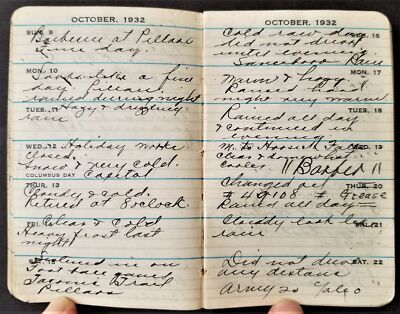 OCTOBER, 1932
SUN. 9
Barbecue at Pillars
Fine day.
MON. 10
Looks like a fine
day. Pillars.
rained during night
TUES. 11 Hazy & drizzling
rain
WED. 12 Holiday works
closed.
& very cold.
COLUMBUS DAY Capitol
THUR. 13
Cloudy & cold.
Retired at 8 o'clock.
FRI. 14 Clear & Cold
Heavy frost last
night
SAT. 15 Listened in on
Foot ball games
Trail
Pillars
OCTOBER, 1932
Cold raw day SUN. 16
did not drive
until evening
Rain
MON. 17
Warm & foggy.
Rained hard
night very warm
TUES. 18
Rained all day
& continued in
evening
M. to Horseshoe WED. 19
Clear &
Cooler. "Barber"
Changed oil THUR. 20
& Grease
Rained all day
Cloudy look like FRI. 21
rain
Did not drive SAT. 22
any distance
Army 20 Yale 0